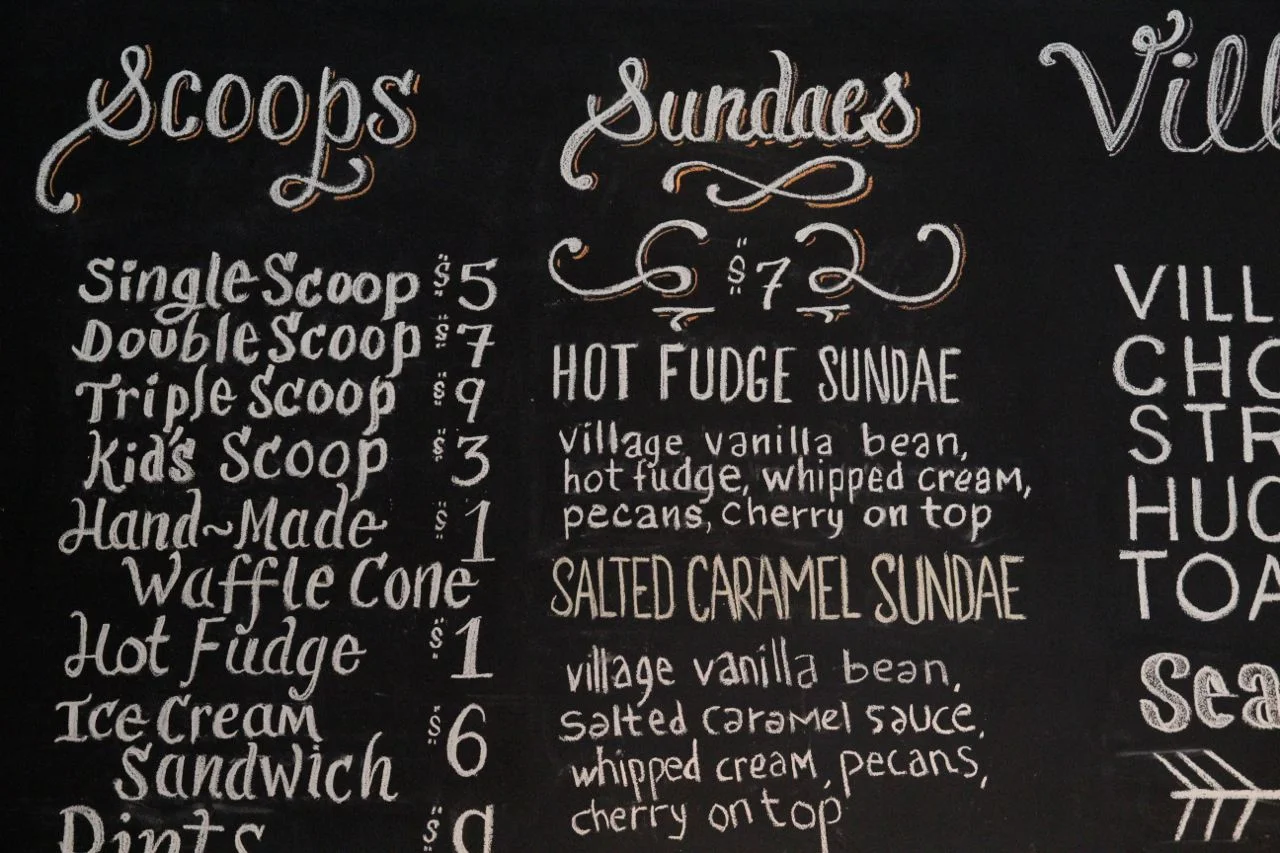 Scoops
Single Scoop $5
Double Scoop $7
Triple Scoop $9
Kid's Scoop $3
Hand~Made $1
Waffle Cone
Hot Fudge $1
Ice Cream $6
Sandwich
Pints $9
Sundaes
$7
HOT FUDGE SUNDAE
village vanilla bean,
hot fudge, whipped cream,
pecans, cherry on top
SALTED CARAMEL SUNDAE
village vanilla bean,
salted caramel sauce,
whipped cream, pecans,
cherry on top
Vill
VILL
CHO
STR
HUC
TOA
Sea